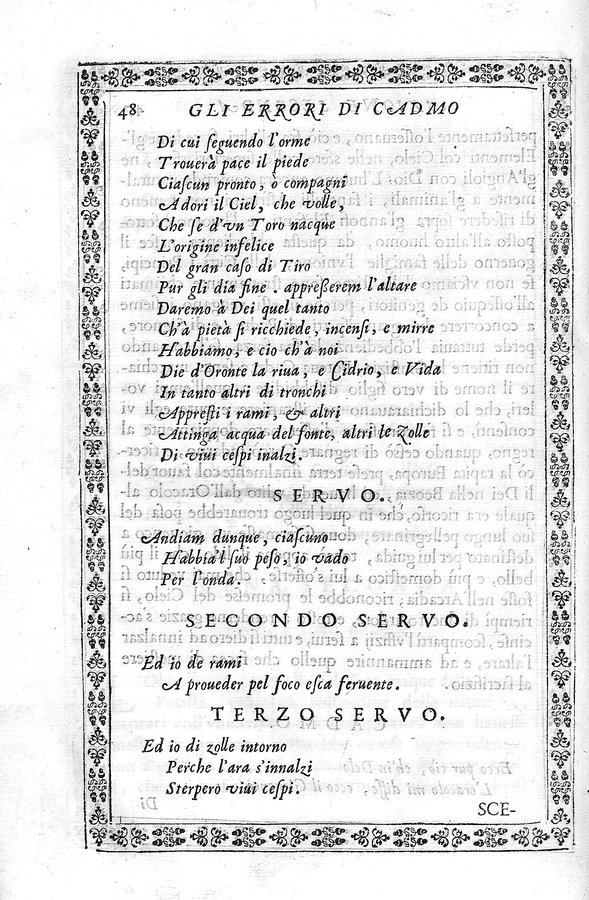 48 GLI ERRORI DI CADMO
Di cui ſeguendo l'orme
Trouerà pace il piede
Ciaſcun pronto, ò compagni
Adori il Ciel, che volle,
Che ſe d'vn Toro nacque
L'origine infelice
Del gran caſo di Tiro
Pur gli dia fine. appreßerem l'altare
Daremo à Dei quel tanto
Ch'à pietà ſi ricchiede, incenſi, e mirre
Habbiamo, e cio ch'à noi
Die d'Oronte la riua, e Cidrio, e Vida
In tanto altri di tronchi
Appreſti i rami, & altri
Attinga acqua del fonte, altri le zolle
Di viui ceſpi inalzi.
SERVO.
Andiam dunque, ciaſcuno
Habbia'l ſuo peſo, io vado
Per l'onda.
SECONDO SERVO.
Ed io de rami
A proueder pel foco eſca feruente.
TERZO SERVO.
Ed io di zolle intorno
Perche l'ara s'innalzi
Sterperò viui ceſpi.
SCE-